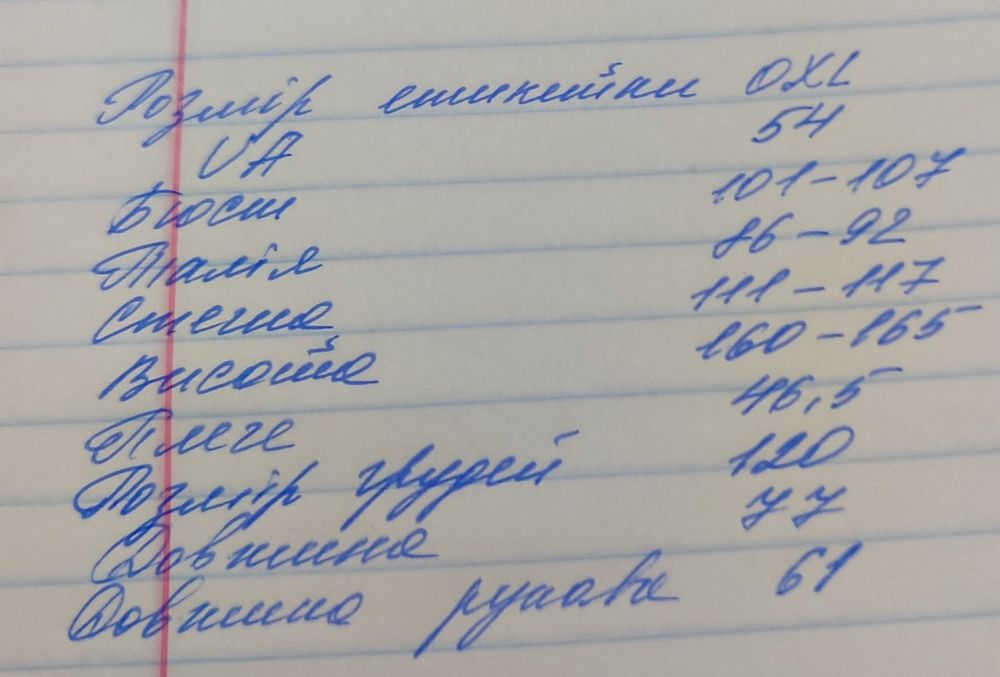 Розмір етикетки 0XL
UA 54
Бюст 101-107
Талія 86-92
Стегна 111-117
Висота 160-165
Плече 46,5
Розмір грудей 120
Довжина 77
Довжина рукава 61